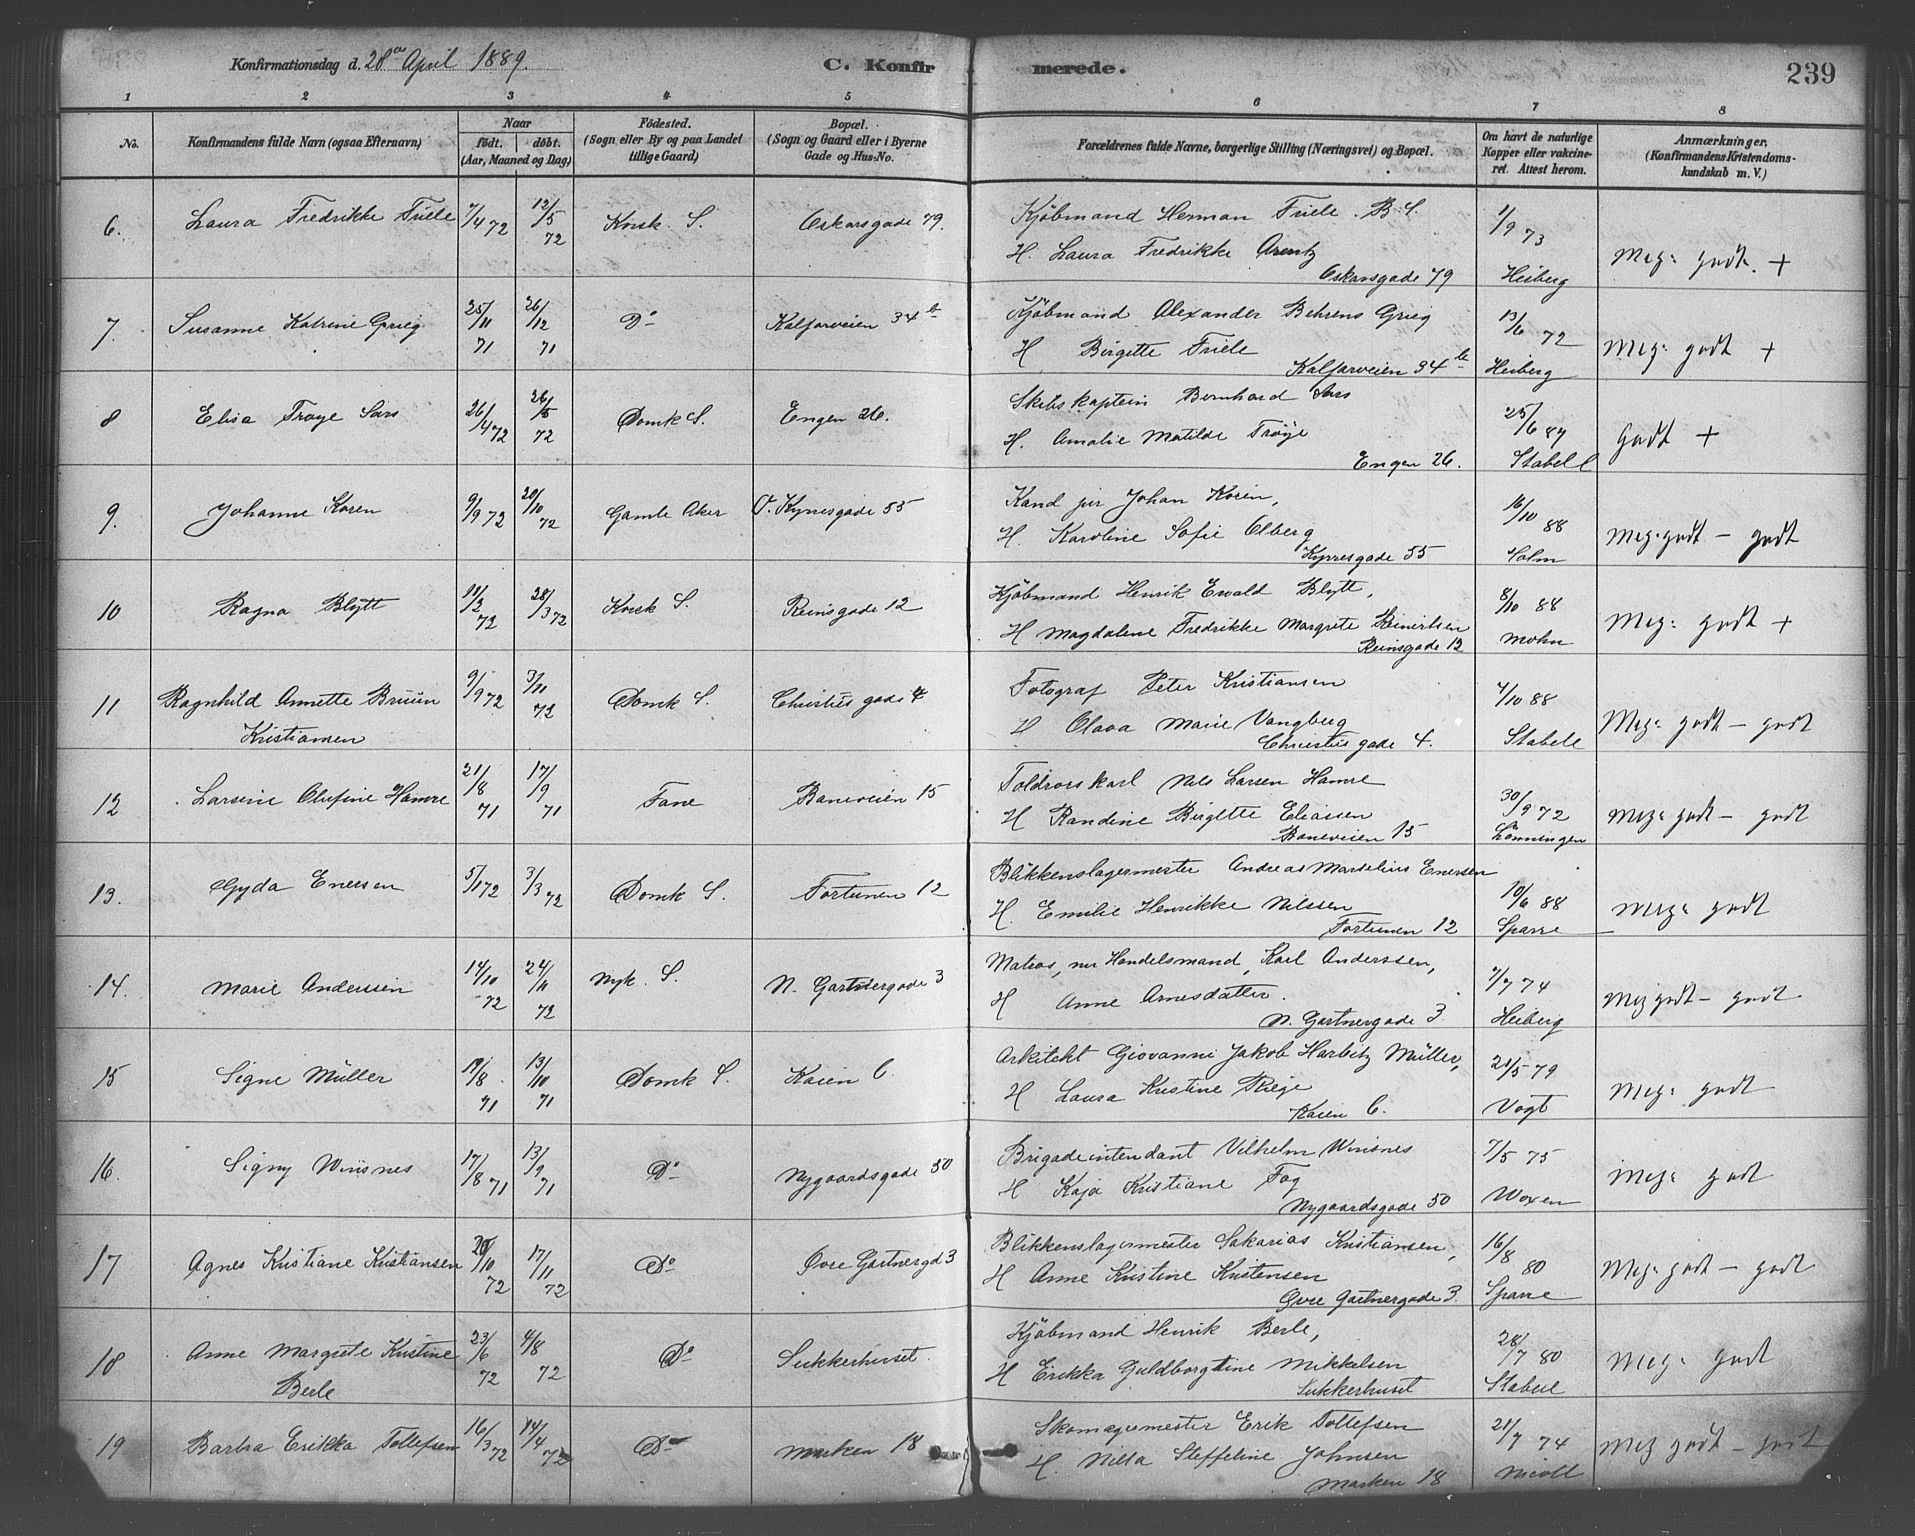 Konfirmationsdag d. 28de April 1889.
C. Konfirmerede.
239
1 2 3 4 5 6 7 8
No.
Konfirmandens fulde Navn (ogsaa Efternavn)
Naar
födt. döbt.
(Aar, Maaned og Dag)
Födested.
(Sogn eller By og paa Landet
tillige Gaard)
Bopæl.
(Sogn og Gaard eller i Byerne
Gade og Hus-No.
Forældrenes fulde Navne, borgerlige Stilling (Næringsvei) og Bopæl.
Om havt de naturlige
Kopper eller vakcine-
ret. Attest herom.
Anmærkninger.
(Konfirmandens Kristendoms-
kundskab m. V.)
6. Laura Fredrikke Friele 7/4 72 12/5 72 Korsk. S. Oskarsgade 79. Kjöbmand Herman Friele. B. S. 1/9 73
H. Laura Fredrikke Arentz
Oskarsgade 79 Heiberg Meg: godt. +
7. Susanne Katrine Grieg 25/11 71 26/12 71 Do Kalfarveien 34 b Kjöbmand Alexander Behrens Grieg 13/6 72
H Birgitte Friele Meg: godt +
Kalfarveien 34 b Heiberg
8 Elisa Troye Sars 26/4 72 26/5 72 Domk S. Engen 26. Skibskaptein Bernhard Sars 25/6 84
H. Amalie Matilde Tröye Godt +
Engen 26. Stabell
9. Johanne Koren 9/9 72 20/10 72 Gamle Aker O. Kyrresgade 55 Kand jur Johan Koren, 16/10 88
H. Karoline Sofie Olberg Meg. godt - godt
Kyrresgade 55 Holm
10 Ragna Blytt 11/2 72 28/3 72 Korsk S. Reinsgade 12 Kjöbmand Henrik Ewald Blytt, 8/10 88
H Magdalene Fredrikke Margrete Reinertsen Meg: godt +
Reinsgade 12 Mohn
11 Ragnhild Annette Bruun
Kristiansen 9/9 72 3/11 72 Domk S. Christies gade 4 Fotograf Peter Kristiansen 4/10 88
H Olava Marie Vangberg Meg: godt - godt
Christies gade 4. Stabell
12 Larsine Olufine Hamre 21/8 71 17/9 71 Fane Baneveien 15 Toldrorskarl Nils Larsen Hamre 30/9 72
H Randine Birgitte Eliassen Meg: godt - godt
Baneveien 15 Lönningen
13. Gyda Enersen 5/1 72 3/3 72 Domk S. Fortunen 12 Blikkenslagermester Andreas Marselius Enersen 10/6 88
H. Emilie Henrikke Nilssen Meg: godt
Fortunen 12 Sparre
14. Marie Anderssen 14/10 72 24/11 72 Nyk. S. N. Gartnergade 3 Matros, nu Handelsmand, Karl Anderssen, 7/7 74
H Anne Arnesdatter. Meg godt - godt
N. Gartnergade 3. Heiberg
15 Signe Müller 19/8 71 13/10 71 Domk S. Kaien 6. Arkitekt Giovanni Jakob Harbitz Müller, 21/5 79
H Laura Kristine Riege Meg: godt
Kaien 6. Vogt
16. Signy Wiisnes 17/8 71 13/9 71 Do Nygaardsgade 50 Brigadeintendant Vilhelm Winsnes 7/5 75
H Kaja Kristiane Fog Meg: godt
Nygaardsgade 50 Woxen
17 Agnes Kristiane Kristiansen 20/10 72 17/11 72 Do Övre Gartnergd 3 Blikkenslagermester Sakarias Kristiansen, 16/8 80
H Anne Kristine Kristensen Meg: godt - godt
Övre Gartnergade 3. Sparre
18 Anne Margrete Kristine
Berle 23/6 72 4/8 72 Do Sukkerhuset. Kjöbmand Henrik Berle, 28/7 80
H Erikka Guldborgtine Mikkelsen Meg: godt
Sukkerhuset Stabell
19 Barbra Erikka Tollefsen 16/3 72 14/4 72 Do Marken 18 Skomagermester Erik Tollefsen 21/7 74
H. Nilsa Steffeline Johnsen Meg godt - godt
Marken 18 Nicoll